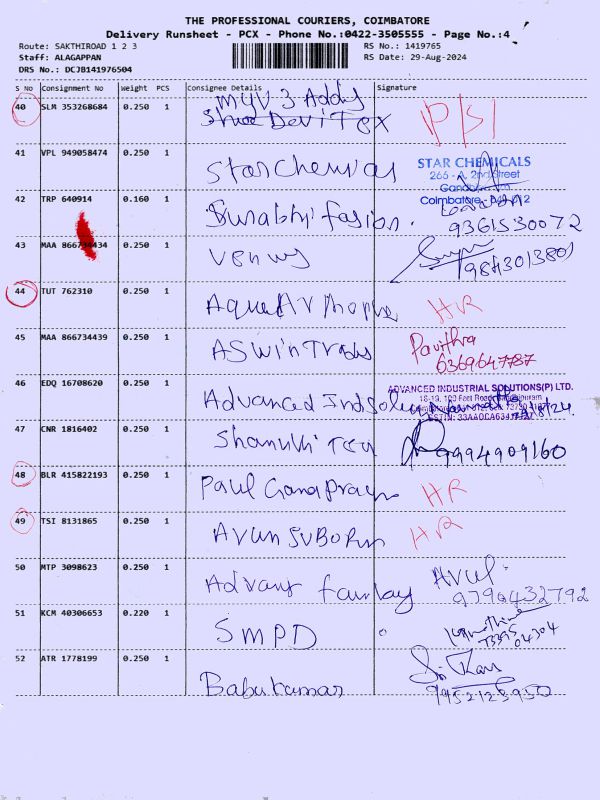 THE PROFESSIONAL COURIERS, COIMBATORE
Delivery Runsheet - PCX - Phone No.:0422-3505555 - Page No.:4
Route: SAKTHIROAD 1 2 3
RS No.: 1419765
Staff: ALAGAPPAN
RS Date: 29-Aug-2024
DRS No.: DCJB141976504
S No Consignment No Weight PCS Consignee Details Signature
40 SLM 353268684 0.250 1 Shree Devi Tex
41 VPL 949058474 0.250 1 Star Chemicals
STAR CHEMICALS
266 - A, 2nd Street
Coimbatore - 641 012
42 TRP 640914 0.160 1 Surabhi fasion. 9361530072
43 MAA 866734434 0.250 1 Venus
44 TUT 762310 0.250 1 HR
45 MAA 866734439 0.250 1 ASwin Trads Pavithra
6369647787
46 EDQ 16708620 0.250 1 Advanced
ADVANCED INDUSTRIAL SOLUTIONS(P) LTD.
47 CNR 1816402 0.250 1 9994909160
48 BLR 415822193 0.250 1 Paul HR
49 TSI 8131865 0.250 1 HR
50 MTP 3098623 0.250 1 Arul.
9790432792
51 KCM 40306653 0.220 1 SMPD
73395
04304
52 ATR 1778199 0.250 1 Babukumar
9952123950